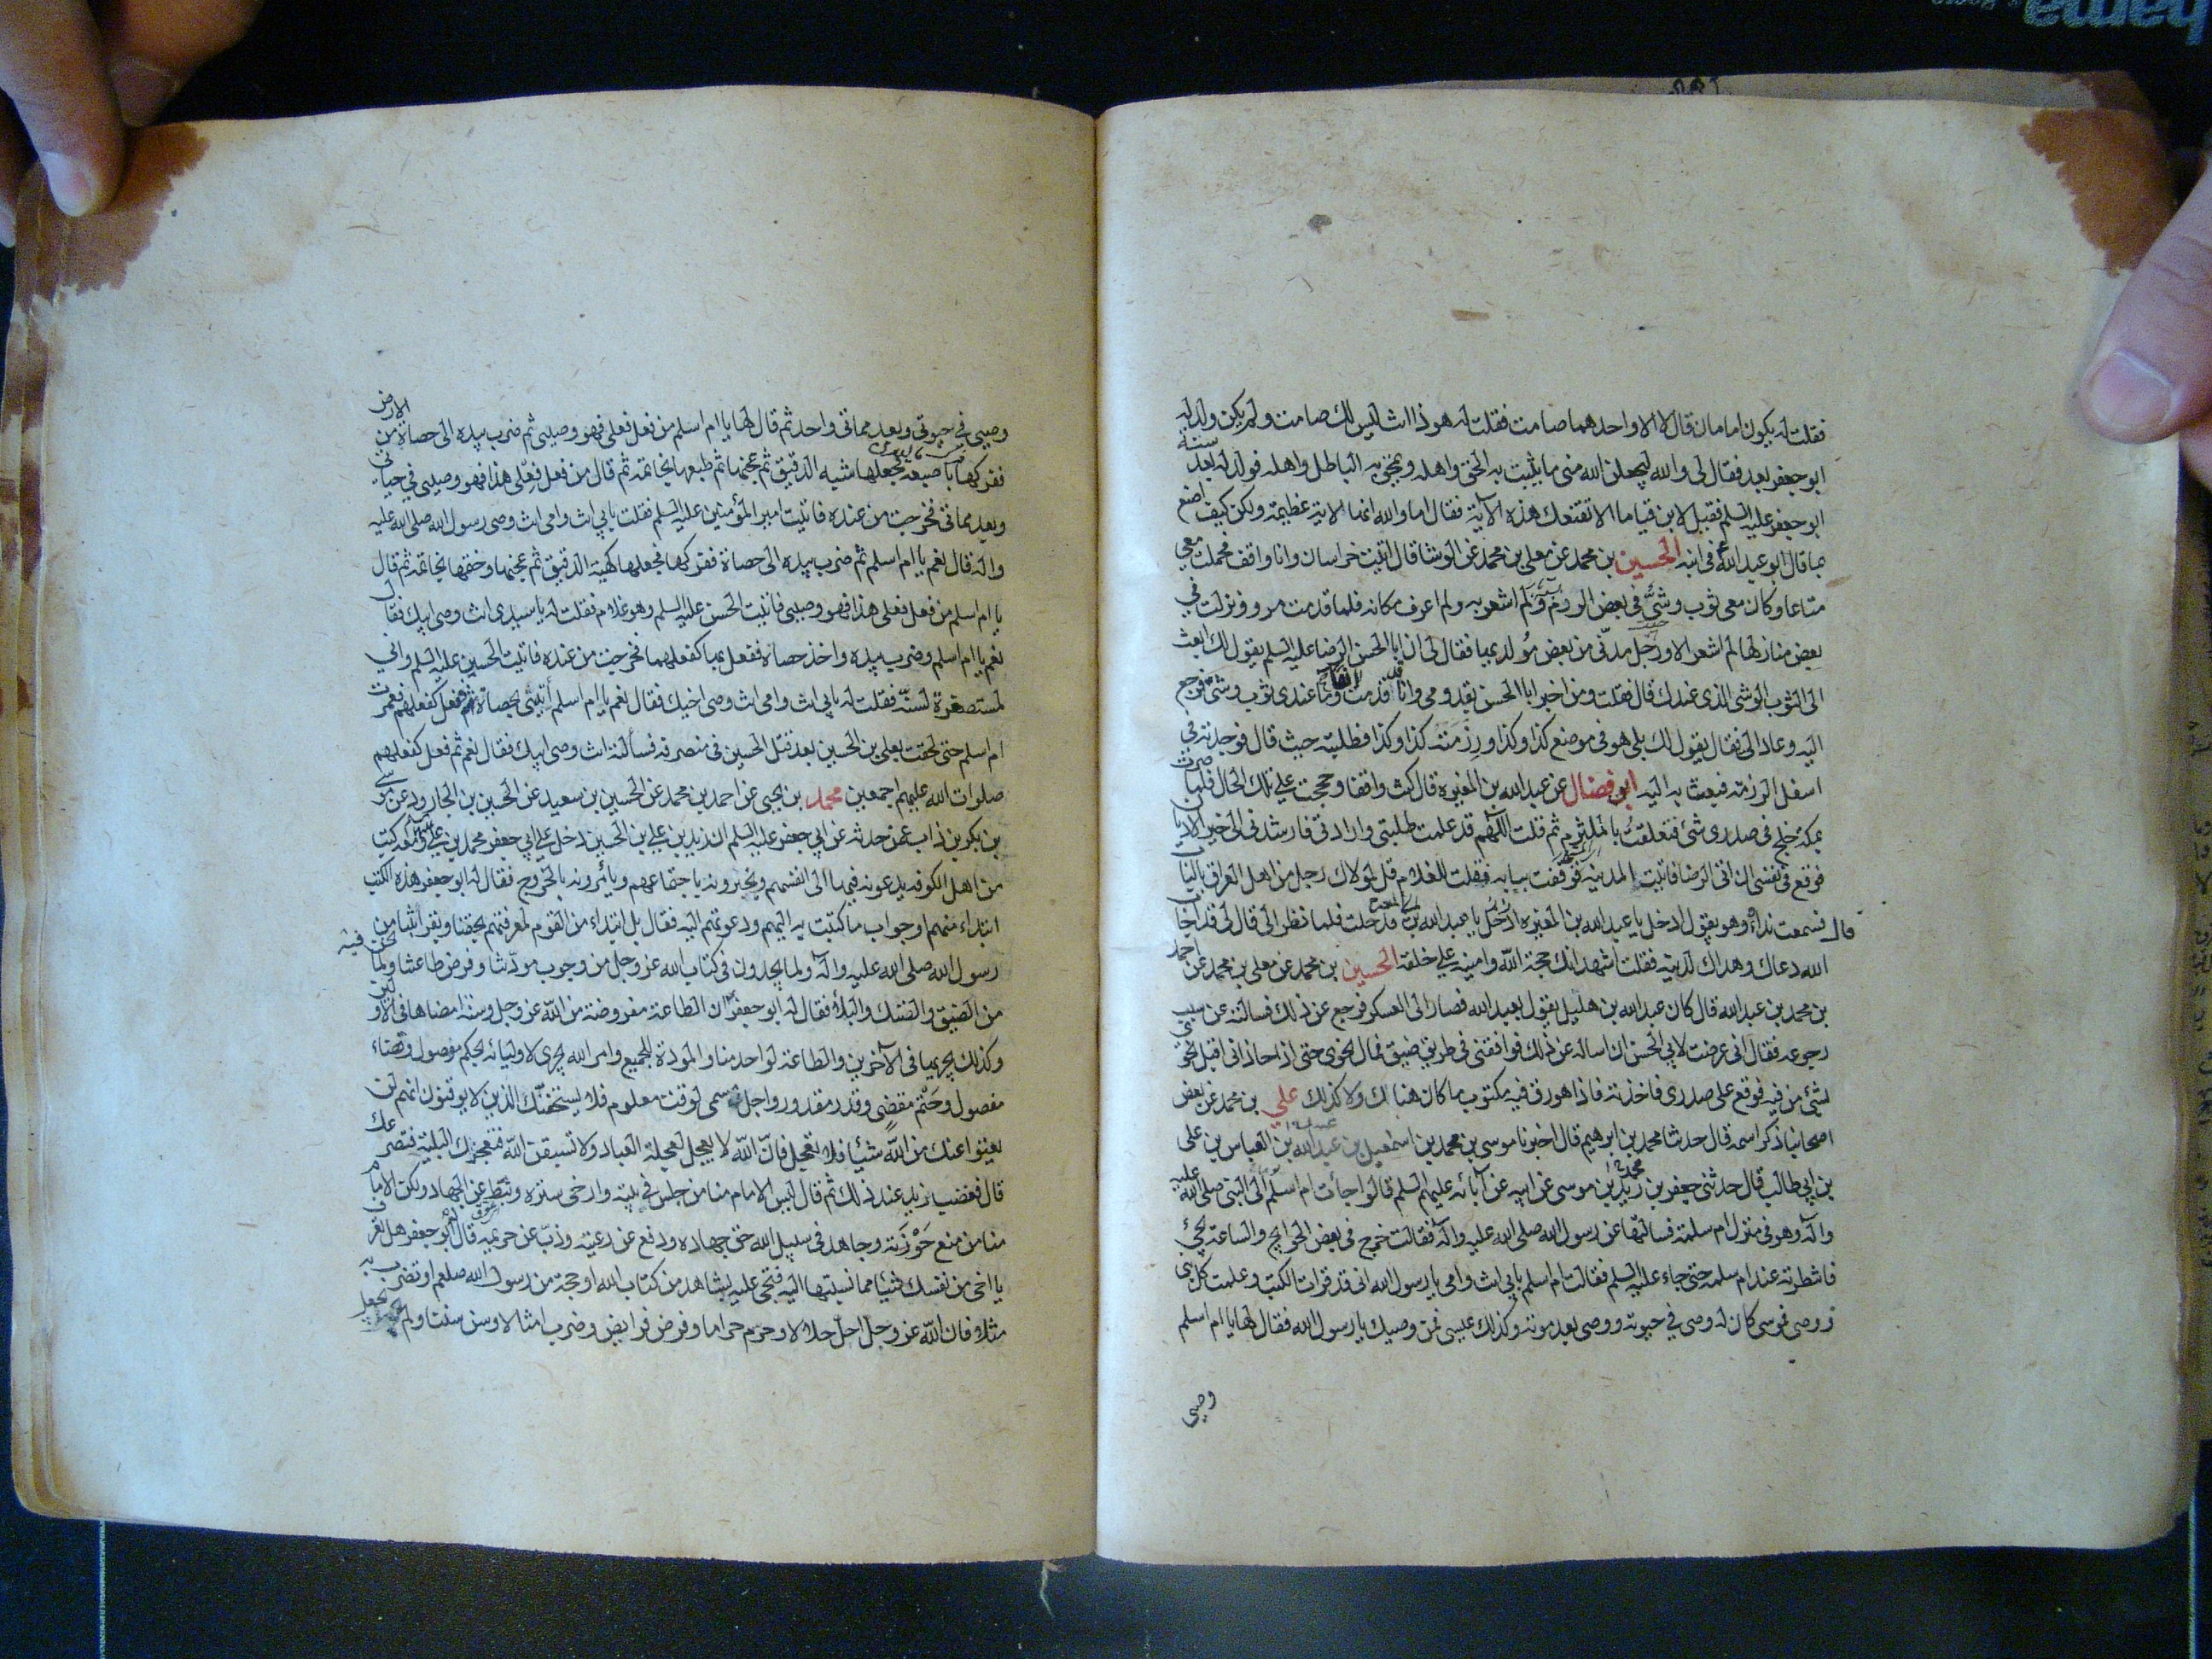 فقلت له يكون امامان قال لا الا واحدهما صامت فقلت له هو ذا انت ليس لك صامت ولم يكن ولد له
ابو جعفر بعد فقال لى والله ليجعلن الله منى ما يثبت به الحق واهله ويمحق به الباطل واهله فولد له بعد سنة
ابو جعفر عليه السلم فقيل لابن قياما الا تقنعك هذه الآية فقال اما والله انها لاية عظيمة ولكن كيف اصنع
بما قال ابو عبد الله فى ابنه الحسين بن محمد عن معلى بن محمد عن الوشا قال اتيت خراسان وانا واقف فحملت معى
متاعا وكان معى ثوب وشىّ فى بعض الرزم ولم اشعر به ولم اعرف مكانه فلما قدمت مرو ونزلت فى
بعض منازلها لم اشعر الا ورجل مدنّى من بعض مُولديها فقال لى ان ابا الحسن الرضا عليه السلم يقول لك ابعث
الى الثوب الوشى الذى عندك قال فقلت ومن اخبر ابا الحسن بقدومى وانا قدمت انفا وما عندى ثوب وشىّ فرجع
اليه وعاد الى فقال يقول لك بلى هو فى موضع كذا وكذا ورزمته كذا وكذا فطلبته حيث قال فوجدته فى
اسفل الرزمة فبعثت به اليه ابو فضال عن عبد الله بن المغيرة قال كنت واقفا وحججت على تلك الحال فلما صرت
بمكة خلج فى صدرى شئ فتعلقتُ بالملتزم ثم قلت اللّهم قد علمت طلبتى وارادتى فارشدنى الى خير الاديان
فوقع فى نفسى ان اتى الرضا فاتيت المدينة فوقفت ببابه فقلت للغلام قل لمولاك رجل من اهل العراق بالباب
قال فسمعت نداءه وهو يقول ادخل يا عبد الله بن المغيرة ادخل يا عبد الله بن المغيرة فدخلت فلما نظر الى قال لى قد اجاب
الله دعاك وهداك لدينه فقلت اشهد انك حجة الله وامينه على خلقه الحسين بن محمد عن معلى بن محمد عن احمد
بن محمد بن عبد الله قال كان عبد الله بن هليل يقول بعبد الله فصار الى العسكر فرجع عن ذلك فسالته عن سبب
رجوعه فقال انى عرضت لابى الحسن ان اساله عن ذلك فوافقنى فى طريق ضيق فمال نحوى حتى اذا حاذانى اقبل نحوى
بشئ من فيه فوقع على صدرى فاخذته فاذا هو رق فيه مكتوب ما كان هنالك ولا كذلك على بن محمد عن بعض
اصحابنا ذكر اسمه قال حدثنا محمد بن ابرهيم قال اخبرنا موسى بن محمد بن اسمعيل بن عبد الله بن العباس بن على
بن ابى طالب قال حدثنى جعفر بن زيد بن موسى عن ابيه عن آبائه عليهم السلم قالوا جاءت ام اسلم الى النبى صلى الله عليه
وآله وهو فى منزل ام سلمة فسالتها عن رسول الله صلى الله عليه وآله فقالت خرج فى بعض الحوايج والساعة يجئ
فانتظرته عند ام سلمه حتى جاء عليه السلم فقالت ام اسلم بابى انت وامى يا رسول الله انى قد قرات الكتب وعلمت كل نبى
ووصى فموسى كان له وصى فى حيوته ووصى بعد موته وكذلك عيسى فمن وصيك يا رسول الله فقال لها يا ام اسلم
وصيى
وصيى فى حيوتى وبعد مماتى واحد ثم قال لها يا ام اسلم من فعل فعلى فهو وصيى ثم ضرب بيده الى حصاة من الارض
ففركها باصبعه فجعلها شبه الدقيق ثم عجنها ثم طبعها بخاتمه ثم قال من فعل فعلى هذا فهو وصيى فى حياتى
وبعد مماتى فخرجت من عنده فاتيت امير المؤمنين عليه السلم فقلت بابى انت وامى انت وصى رسول الله صلى الله عليه
وآله قال نعم يا ام اسلم ثم ضرب بيده الى حصاة ففركها فجعلها كهيئة الدقيق ثم عجنها وختمها بخاتمه ثم قال
يا ام اسلم من فعل فعلى هذا فهو وصيى فاتيت الحسن عليه السلم وهو غلام فقلت له يا سيدى انت وصى ابيك فقال
نعم يا ام اسلم وضرب بيده واخذ حصاة ففعل بها كفعلهما فخرجت من عنده فاتيت الحسين عليه السلم وانى
لمستصغرة لسنّه فقلت له بابى انت وامى انت وصى اخيك فقال نعم يا ام اسلم أيتينى بحصاة ثم فعل كفعلهم فعمرت
ام اسلم حتى لحقت بعلى بن الحسين بعد قتل الحسين فى منصرفه فسألته انت وصى ابيك فقال نعم ثم فعل كفعلهم
صلوات الله عليهم اجمعين محمد بن يحيى عن احمد بن محمد عن الحسين بن سعيد عن الحسين بن الجارود عن موسى
بن بكر بن داب عمن حدثه عن ابى جعفر عليه السلم ان زيد بن على بن الحسين دخل على ابى جعفر محمد بن على ومعه كتب
من اهل الكوفه يدعونه فيها الى انفسهم ويخبرونه باجتماعهم ويأمرونه بالخروج فقال له ابو جعفر هذه الكتب
ابتداء منهم او جواب ما كتبت به اليهم ودعوتهم اليه فقال بل ابتداء من القوم لمعرفتهم بحقنا وبقرابتنا من
رسول الله صلى الله عليه وآله ولما يجدون فى كتاب الله عز وجل من وجوب مودّتنا وفرض طاعتنا ولما نحن فيه
من الضيق والضنك والبلاء فقال له ابو جعفر ان الطاعة مفروضة من الله عز وجل وسنة امضاها فى الاولين
وكذلك يجريها فى الآخرين والطاعة لواحد منا والمودة للجميع وامر الله يجرى لاوليائه بحكم موصول وقضاء
مفصول وحَتْم مقضى وقدر مقدور واجل مسمى لوقت معلوم فلا يستخفنّك الذين لا يوقنون انهم لن
يغنوا عنك من الله شيئا فلا تعجل فانّ الله لا يعجل لعجلة العباد ولا تسبقن الله فتعجزك البلية فتصرعك
قال فغضب زيد عند ذلك ثم قال ليس الامام منا من جلس فى بيته وارخى ستره وثبّط عن الجهاد ولكن الامام
منا من منع حَوْزَته وجاهد فى سبيل الله حق جهاده ودفع عن رعيته وذبّ عن حريمه قال ابو جعفر هل تعرف
يا اخى من نفسك شيئا مما نسبتها اليه فتجئ عليه بشاهد من كتاب الله او حجة من رسول الله صلعم او تضرب به
مثلا فان الله عز وجل احلّ حلالا وحرم حراما وفرض فرايض وضرب امثالا وسن سننا ولم يجعل